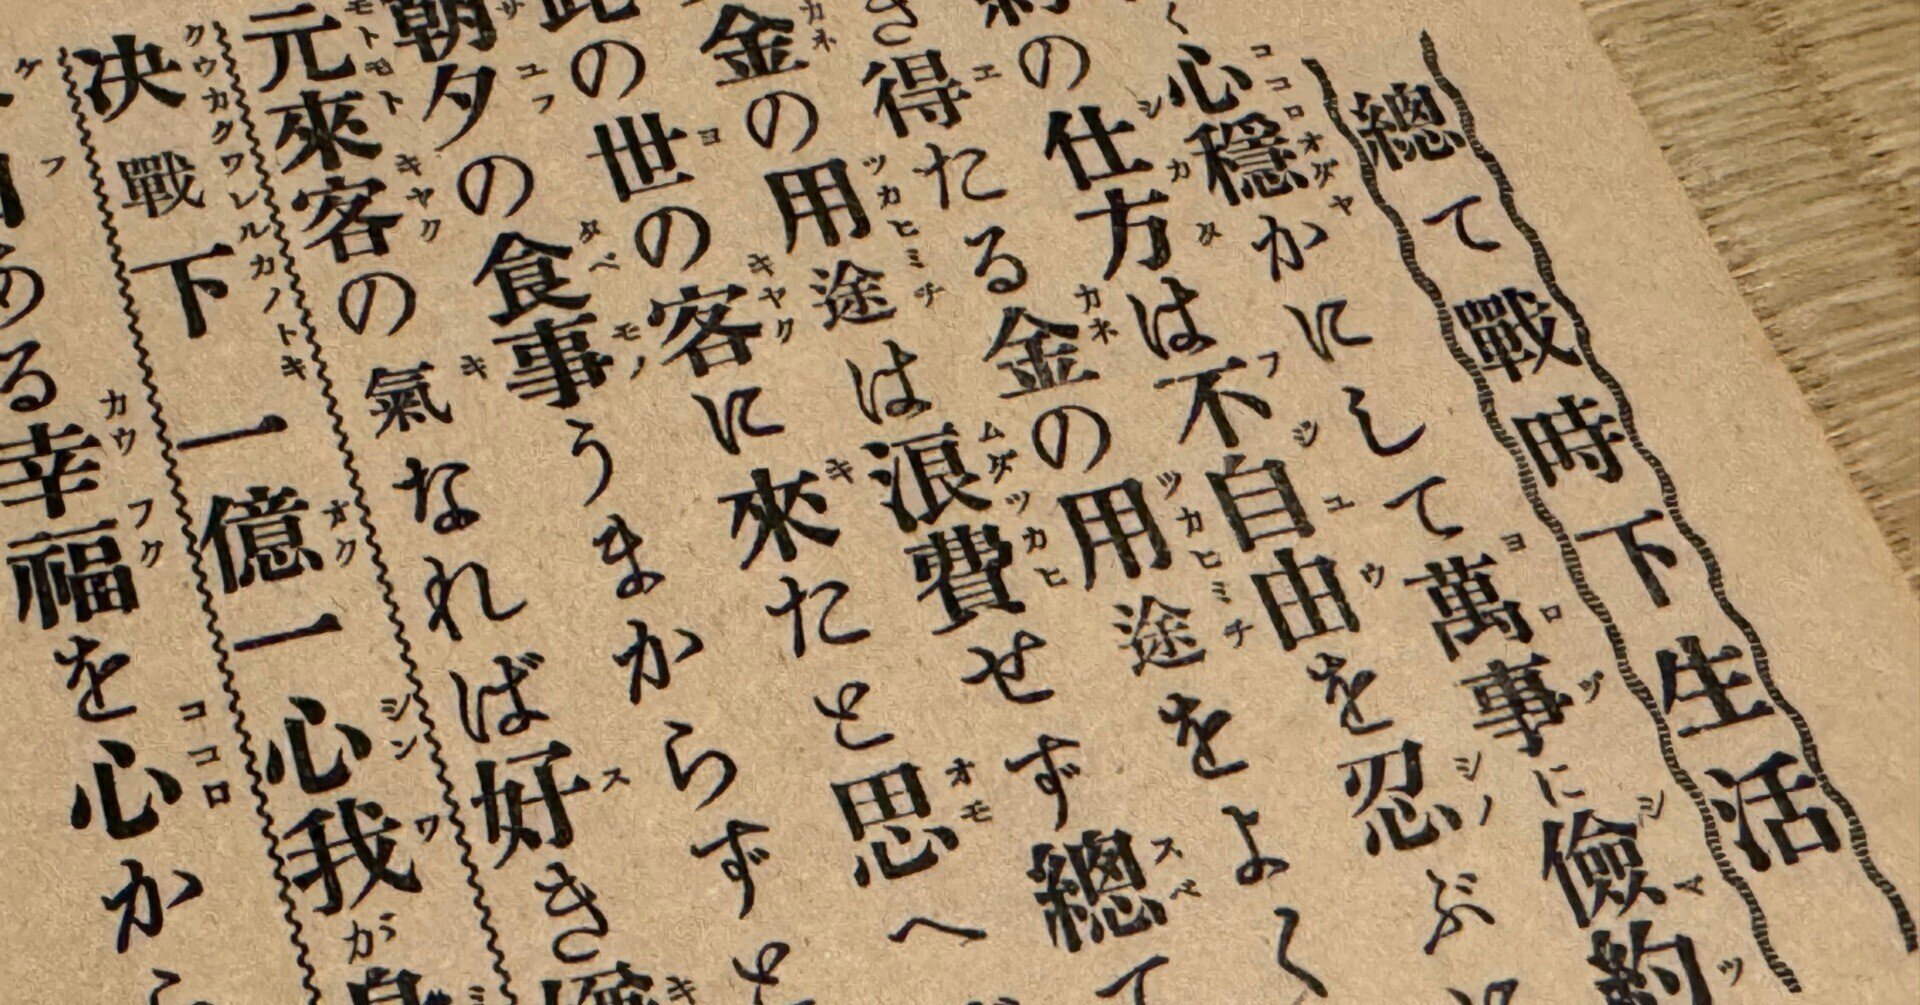 總て戰時下生活
く心穩かにして萬事に儉約
の仕方は不自由を忍ぶ
き得たる金の用途をよく
金の用途は浪費せず總て
此の世の客に來たと思へ
朝夕の食事うまからずと
元來客の氣なれば好き嫌
決戰下一億一心我が身
ある幸福を心から